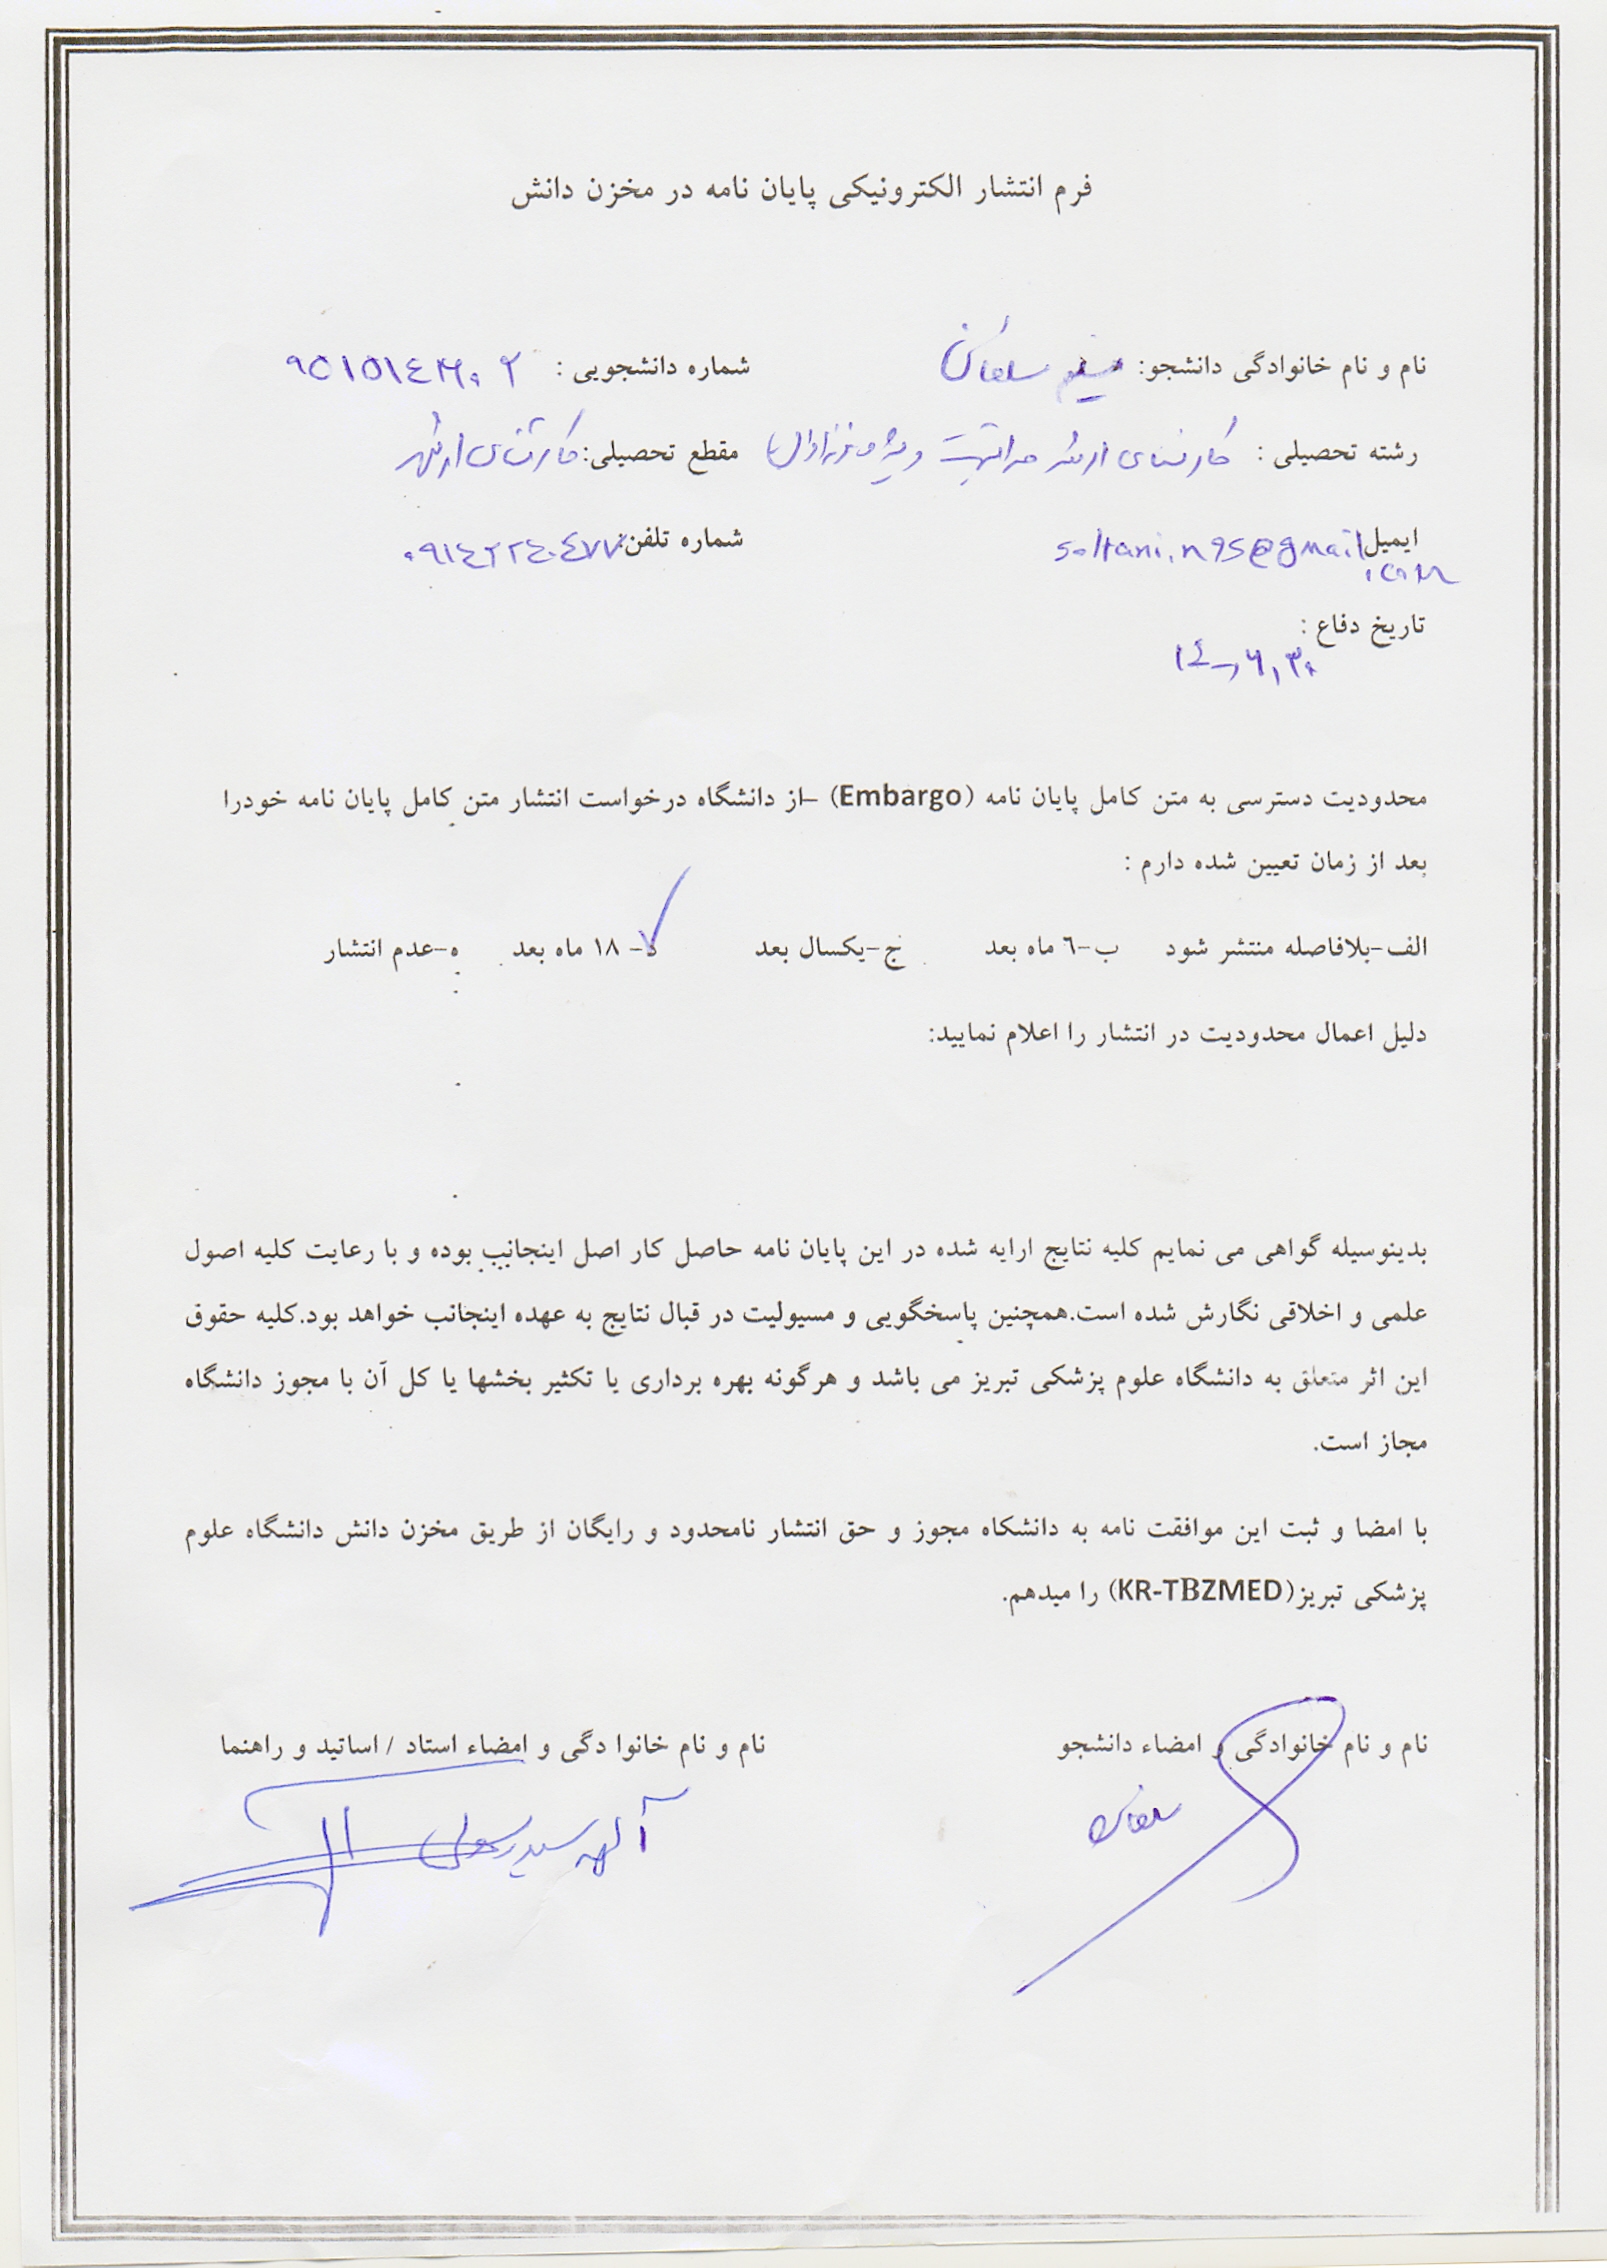 فرم انتشار الکترونیکی پایان نامه در مخزن دانش
نام و نام خانوادگی دانشجو: نسیم سلطانی شماره دانشجویی :
رشته تحصیلی : کارشناسی ارشد مراقبت ویژه نوزادان مقطع تحصیلی: کارشناسی ارشد
ایمیل soltani.n95@gmail.com شماره تلفن: ۰۹۱٤۲۲٤۰٤۷۷
تاریخ دفاع :
۱٤۰۰,٦,۳۰
محدودیت دسترسی به متن کامل پایان نامه (Embargo) –از دانشگاه درخواست انتشار متن کامل پایان نامه خودرا
بعد از زمان تعیین شده دارم :
الف-بلافاصله منتشر شود ب-٦ ماه بعد ج-یکسال بعد د- ۱۸ ماه بعد ✓ ه-عدم انتشار
دلیل اعمال محدودیت در انتشار را اعلام نمایید:
بدینوسیله گواهی می نمایم کلیه نتایج ارایه شده در این پایان نامه حاصل کار اصل اینجانب بوده و با رعایت کلیه اصول
علمی و اخلاقی نگارش شده است.همچنین پاسخگویی و مسیولیت در قبال نتایج به عهده اینجانب خواهد بود.کلیه حقوق
این اثر متعلق به دانشگاه علوم پزشکی تبریز می باشد و هرگونه بهره برداری یا تکثیر بخشها یا کل آن با مجوز دانشگاه
مجاز است.
با امضا و ثبت این موافقت نامه به دانشکاه مجوز و حق انتشار نامحدود و رایگان از طریق مخزن دانش دانشگاه علوم
پزشکی تبریز(KR-TBZMED) را میدهم.
نام و نام خانوادگی و امضاء دانشجو نام و نام خانوا دگی و امضاء استاد / اساتید و راهنما
سلطانی